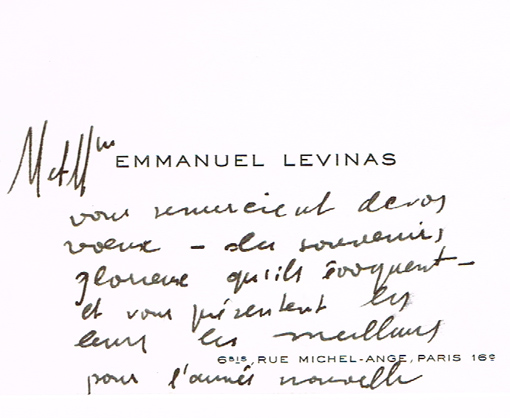 M et Mme EMMANUEL LEVINAS
vous remercient de vos
voeux – des souvenirs
glorieux qu'ils évoquent –
et vous présentent les
leurs les meilleurs
6BIS, RUE MICHEL-ANGE, PARIS 16e
pour l'année nouvelle